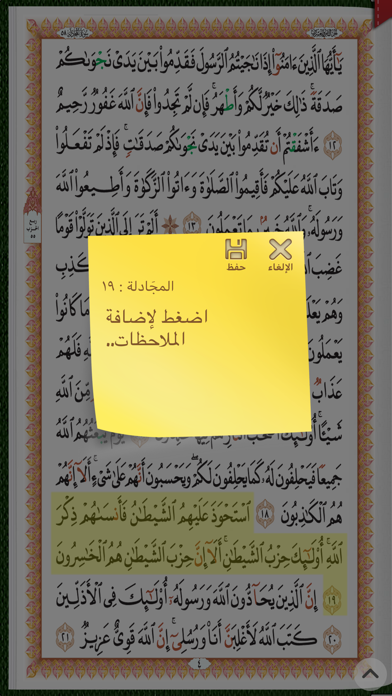 يَٰٓأَيُّهَا ٱلَّذِينَ ءَامَنُوٓا۟ إِذَا نَٰجَيْتُمُ ٱلرَّسُولَ فَقَدِّمُوا۟ بَيْنَ يَدَىْ نَجْوَىٰكُمْ
صَدَقَةً ۚ ذَٰلِكَ خَيْرٌ لَّكُمْ وَأَطْهَرُ ۚ فَإِن لَّمْ تَجِدُوا۟ فَإِنَّ ٱللَّهَ غَفُورٌ رَّحِيمٌ
١٢ ءَأَشْفَقْتُمْ أَن تُقَدِّمُوا۟ بَيْنَ يَدَىْ نَجْوَىٰكُمْ صَدَقَٰتٍ ۚ فَإِذْ لَمْ تَفْعَلُوا۟
وَتَابَ ٱللَّهُ عَلَيْكُمْ فَأَقِيمُوا۟ ٱلصَّلَوٰةَ وَءَاتُوا۟ ٱلزَّكَوٰةَ وَأَطِيعُوا۟ ٱللَّهَ
وَرَسُولَهُۥ ۚ وَٱللَّهُ خَبِيرٌۢ بِمَا تَعْمَلُونَ ١٣ أَلَمْ تَرَ إِلَى ٱلَّذِينَ تَوَلَّوْا۟ قَوْمًا
غَضِبَ ٱللَّهُ
ٱلْكَذِبِ
وَهُمْ يَعْلَمُونَ
مَا كَانُوا۟
يَعْمَلُونَ
فَلَهُمْ
عَذَابٌ
مِّنَ ٱللَّهِ
شَيْـًٔا ۚ أُو۟لَٰٓئِكَ أَصْحَٰبُ ٱلنَّارِ يَوْمَ يَبْعَثُهُمُ ٱللَّهُ
جَمِيعًا فَيَحْلِفُونَ لَهُۥ كَمَا يَحْلِفُونَ لَكُمْ ۖ وَيَحْسَبُونَ أَنَّهُمْ عَلَىٰ شَىْءٍ ۚ أَلَآ إِنَّهُمْ
هُمُ ٱلْكَٰذِبُونَ ١٨ ٱسْتَحْوَذَ عَلَيْهِمُ ٱلشَّيْطَٰنُ فَأَنسَىٰهُمْ ذِكْرَ
ٱللَّهِ ۚ أُو۟لَٰٓئِكَ حِزْبُ ٱلشَّيْطَٰنِ ۚ أَلَآ إِنَّ حِزْبَ ٱلشَّيْطَٰنِ هُمُ ٱلْخَٰسِرُونَ
١٩ إِنَّ ٱلَّذِينَ يُحَآدُّونَ ٱللَّهَ وَرَسُولَهُۥٓ أُو۟لَٰٓئِكَ فِى ٱلْأَذَلِّينَ
٢٠ كَتَبَ ٱللَّهُ لَأَغْلِبَنَّ أَنَا۠ وَرُسُلِىٓ ۚ إِنَّ ٱللَّهَ قَوِىٌّ عَزِيزٌ ٢١
٤
الإلغاء
حفظ
المجَادلة : ١٩
اضغط لإضافة
الملاحظات..